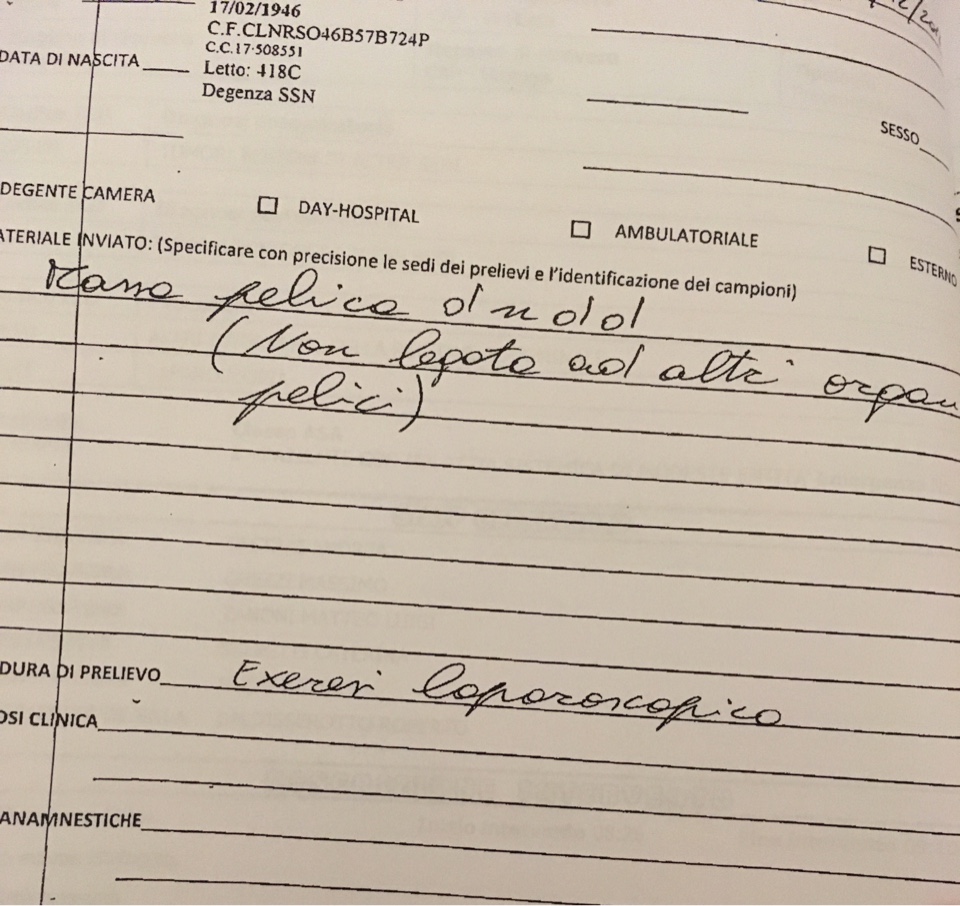 17/02/1946
C.F.CLNRSO46B57B724P
C.C.17-508551
DATA DI NASCITA
Letto: 418C
Degenza SSN
SESSO
DEGENTE CAMERA
DAY-HOSPITAL
AMBULATORIALE
ESTERNO
ATERIALE INVIATO: (Specificare con precisione le sedi dei prelievi e l'identificazione dei campioni)
Massa pelvica
(Non legata ad altri organ
pelvici)
DURA DI PRELIEVO Exeresi laparoscopica
OSI CLINICA
ANAMNESTICHE